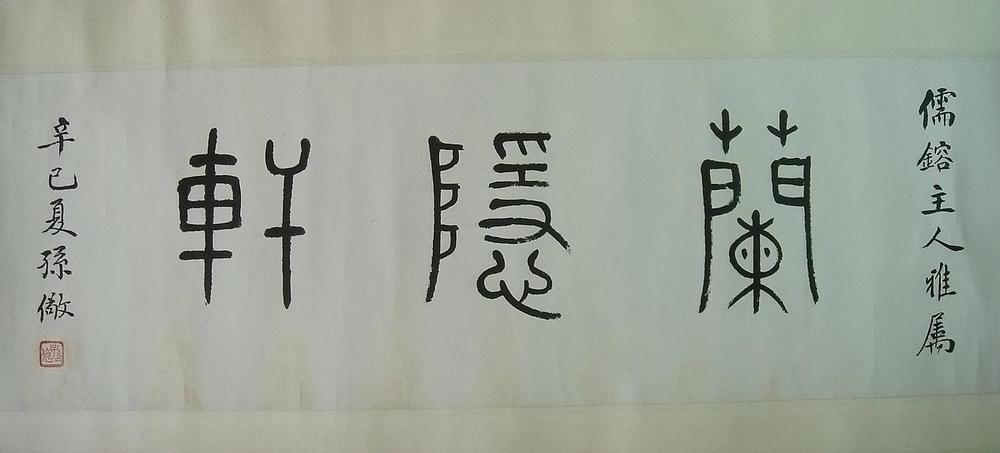 儒鎔主人雅属
蘭隱軒
辛巳夏孫儆